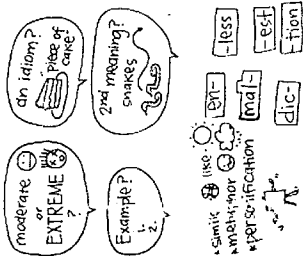 moderate
or
EXTREME
?
an idiom?
piece of
cake
Example?
1.
2.
2nd meaning?
snakes
simile
like
metaphor
personification
en-
-less
mal-
-est
dic-
-tion